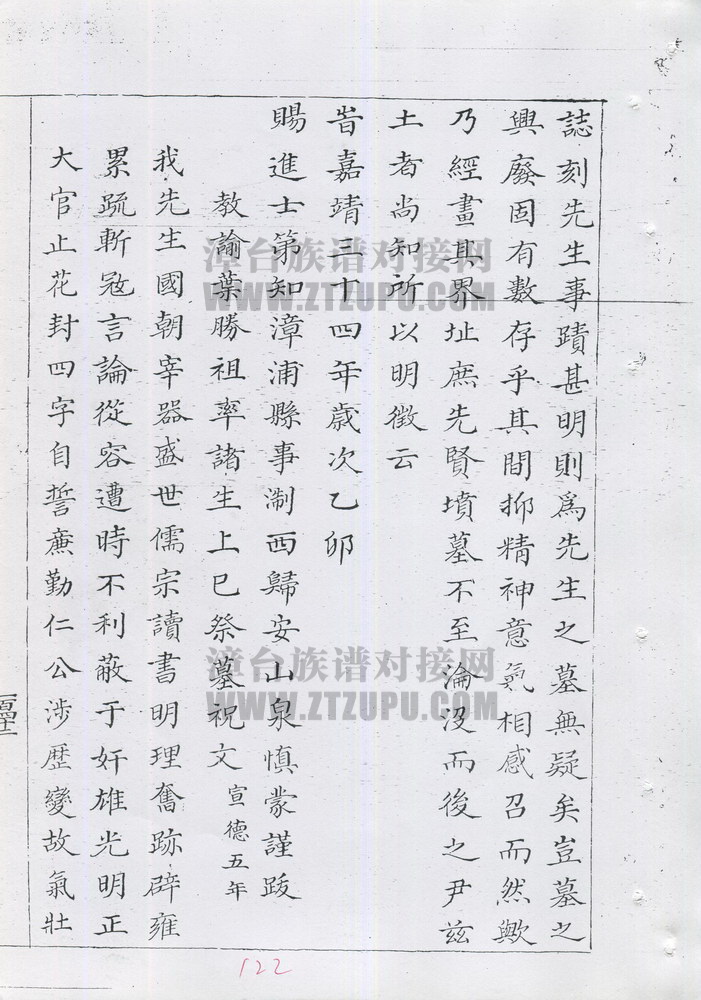 誌刻先生事蹟甚明則為先生之墓無疑矣豈墓之
興廢固有數存乎其間抑精神意氣相感召而然歟
乃經畫其界址庶先賢墳墓不至淪沒而後之尹兹
土者尚知所以明徵云
旹嘉靖三十四年歲次乙卯
賜進士第知漳浦縣事淛西歸安山泉慎蒙謹跋
教諭葉勝祖率諸生上巳祭墓祝文 宣德五年
我先生國朝宰器盛世儒宗讀書明理奮跡辟雍
累疏斬冦言論從容遭時不利蔽于奸雄光明正
大官止花封四字自誓廉勤仁公涉歷變故氣壯
漳台族谱对接网
WWW.ZTZUPU.COM
漳台族谱对接网
WWW.ZTZUPU.COM
122